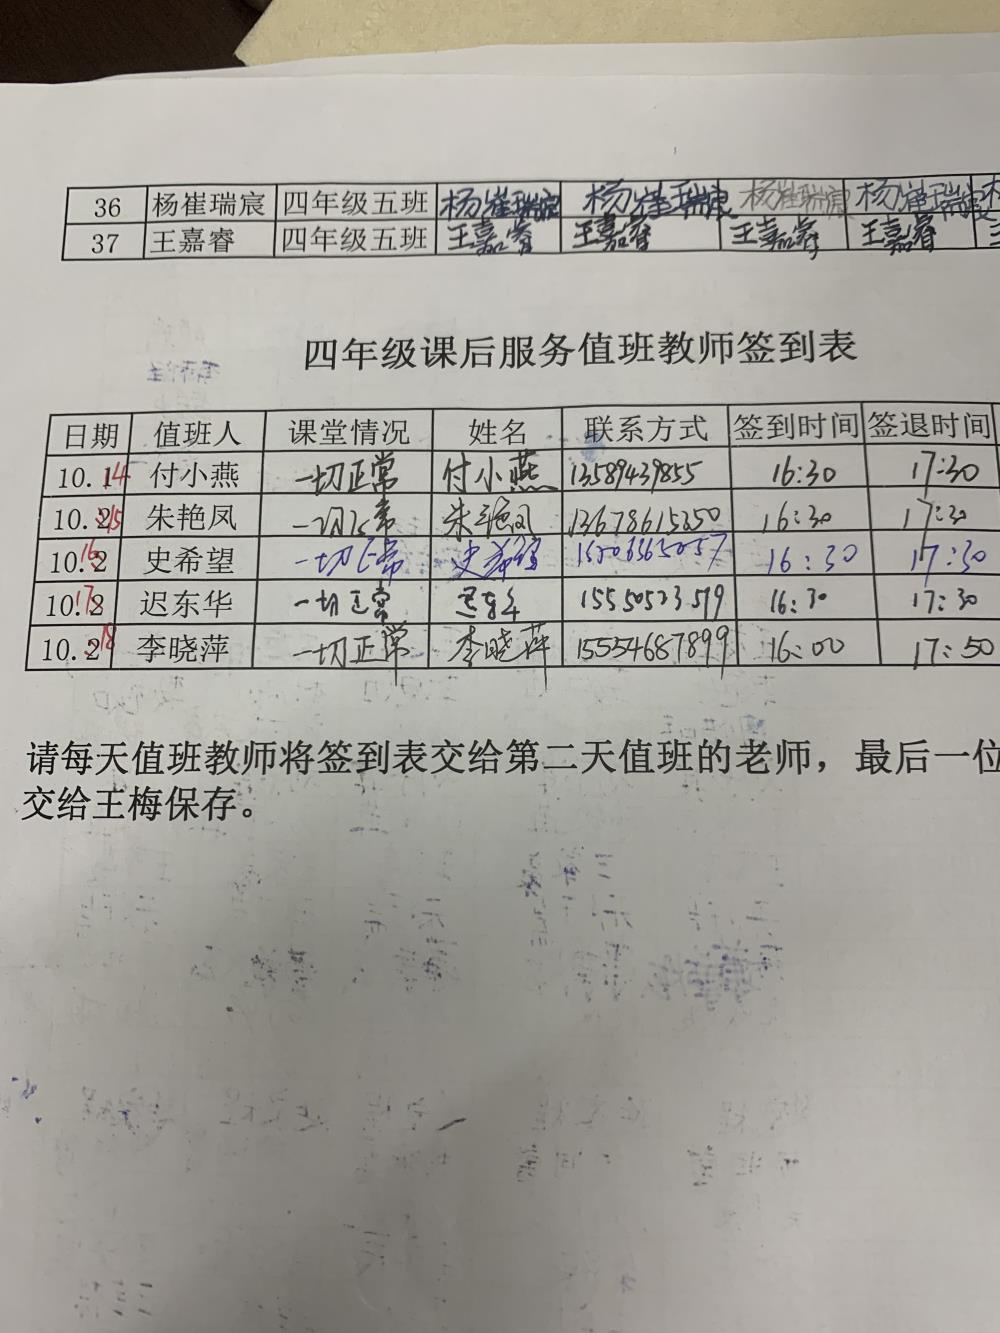 36 杨崔瑞宸 四年级五班 杨崔瑞宸 杨崔瑞宸 杨崔瑞宸 杨崔瑞宸
37 王嘉睿 四年级五班 王嘉睿 王嘉睿 王嘉睿 王嘉睿
四年级课后服务值班教师签到表
日期 值班人 课堂情况 姓名 联系方式 签到时间 签退时间
10.14 付小燕 一切正常 付小燕 13589439855 16:30 17:30
10.15 朱艳凤 一切正常 朱艳凤 13678615850 16:30 17:30
10.16 史希望 一切正常 史希望 16:30 17:30
10.17 迟东华 一切正常 迟东华 16:30 17:30
10.18 李晓萍 一切正常 李晓萍 15554687899 16:00 17:50
请每天值班教师将签到表交给第二天值班的老师，最后一位
交给王梅保存。